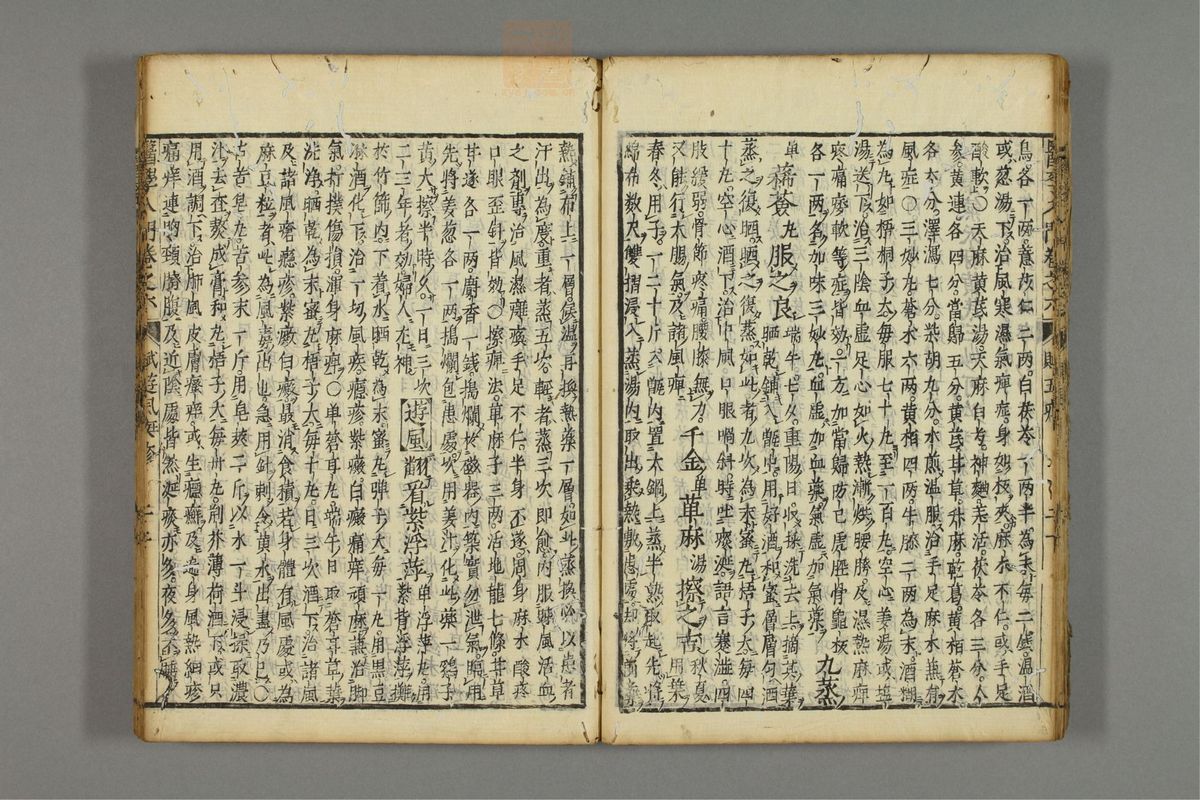 烏各一兩薏苡仁二兩白茯苓一兩半為末每二錢溫酒
或葱湯下治風寒濕氣痺症身如板夾麻木不仁或手足
酸軟〇天麻黃芪湯天麻白芍神麯羌活茯苓各三分人
參黃連各四分當歸五分黃芪甘草升麻乾葛黃栢蒼朮
各六分澤瀉七分柴胡九分水煎溫服治手足麻木兼有
風症〇三妙丸蒼朮六兩黃栢四兩牛膝二兩為末酒糊
為丸如梧桐子大每服七十丸至一百丸空心姜湯或塩
湯送下治三陰血虛足心如火熱漸燒腰胯及濕熱麻痺
疼痛痿軟等症皆效一方加當歸防己虎脛骨龜板
各一兩名加味三妙丸血虛加血藥氣虛加氣藥 九蒸
單 豨薟丸服之良 端午七夕重陽日收採洗去土摘其葉
晒乾鋪入甑中用好酒和蜜層層勻洒
蒸之復晒晒之復蒸如此者九次為末蜜丸梧子大每四
十丸空心溫酒下治中風口眼喎斜時吐痰涎語言蹇澁四
肢緩弱骨節疼痛腰膝無力 千金單萆麻湯擦之吉 秋夏用葉
春冬用子一二十斤入甑內置大鍋上蒸半熟取起先將
綿布數尺雙摺浸入蒸湯內取出乘熱敷患處却將
熱鋪布上一層候溫再換熱藥一層如此蒸換必以患者
汗出為度重者蒸五次輕者蒸三次即愈內服踈風活血
之劑專治風濕癱瘓手足不仁半身不遂周身麻木酸疼
口眼歪斜皆效〇擦痺法萆麻子三兩活地龍七條甘草
甘遂各一兩麝香一錢搗爛
先將姜葱各一兩搗爛包患處次用姜汁化此藥一鷄子
黃大擦半時久一日三次 遊風翻看紫浮萍 單浮萍丸
二三年者効婦人尤神
於竹篩內下着水晒乾為末蜜丸彈子大每一丸用黑豆
淋酒化下治一切風疾癮疹紫癜白癜痛痒頑麻兼治脚
氣打撲傷損渾身麻痺〇單蒼耳丸端午日取蒼耳草葉
洗淨晒乾為末蜜丸梧子大每十丸日三次酒下治諸風
及諸風瘡癮疹紫癜白癜最消食積若身體有風處或為
麻豆粒者此為風毒出也急用針刺令黃水出盡乃已〇
古苦皂丸苦參末一斤用皂莢二斤以水一斗浸揉取濃
汁去查熬成膏和丸梧子大每卅丸荊芥薄荷酒下或只
用酒調下治肺風皮膚瘙痒或生癮癬及遍身風熱細疹
痛痒連胸頸臍腹及近陰處皆然涎痰亦多夜多不睡
醫學入門卷之六 賦遊風疹